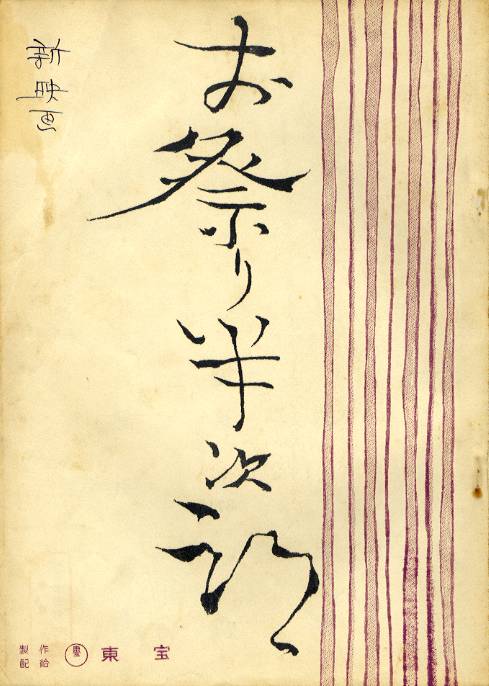 お祭り半次郎
新映画
製作
配給
東宝